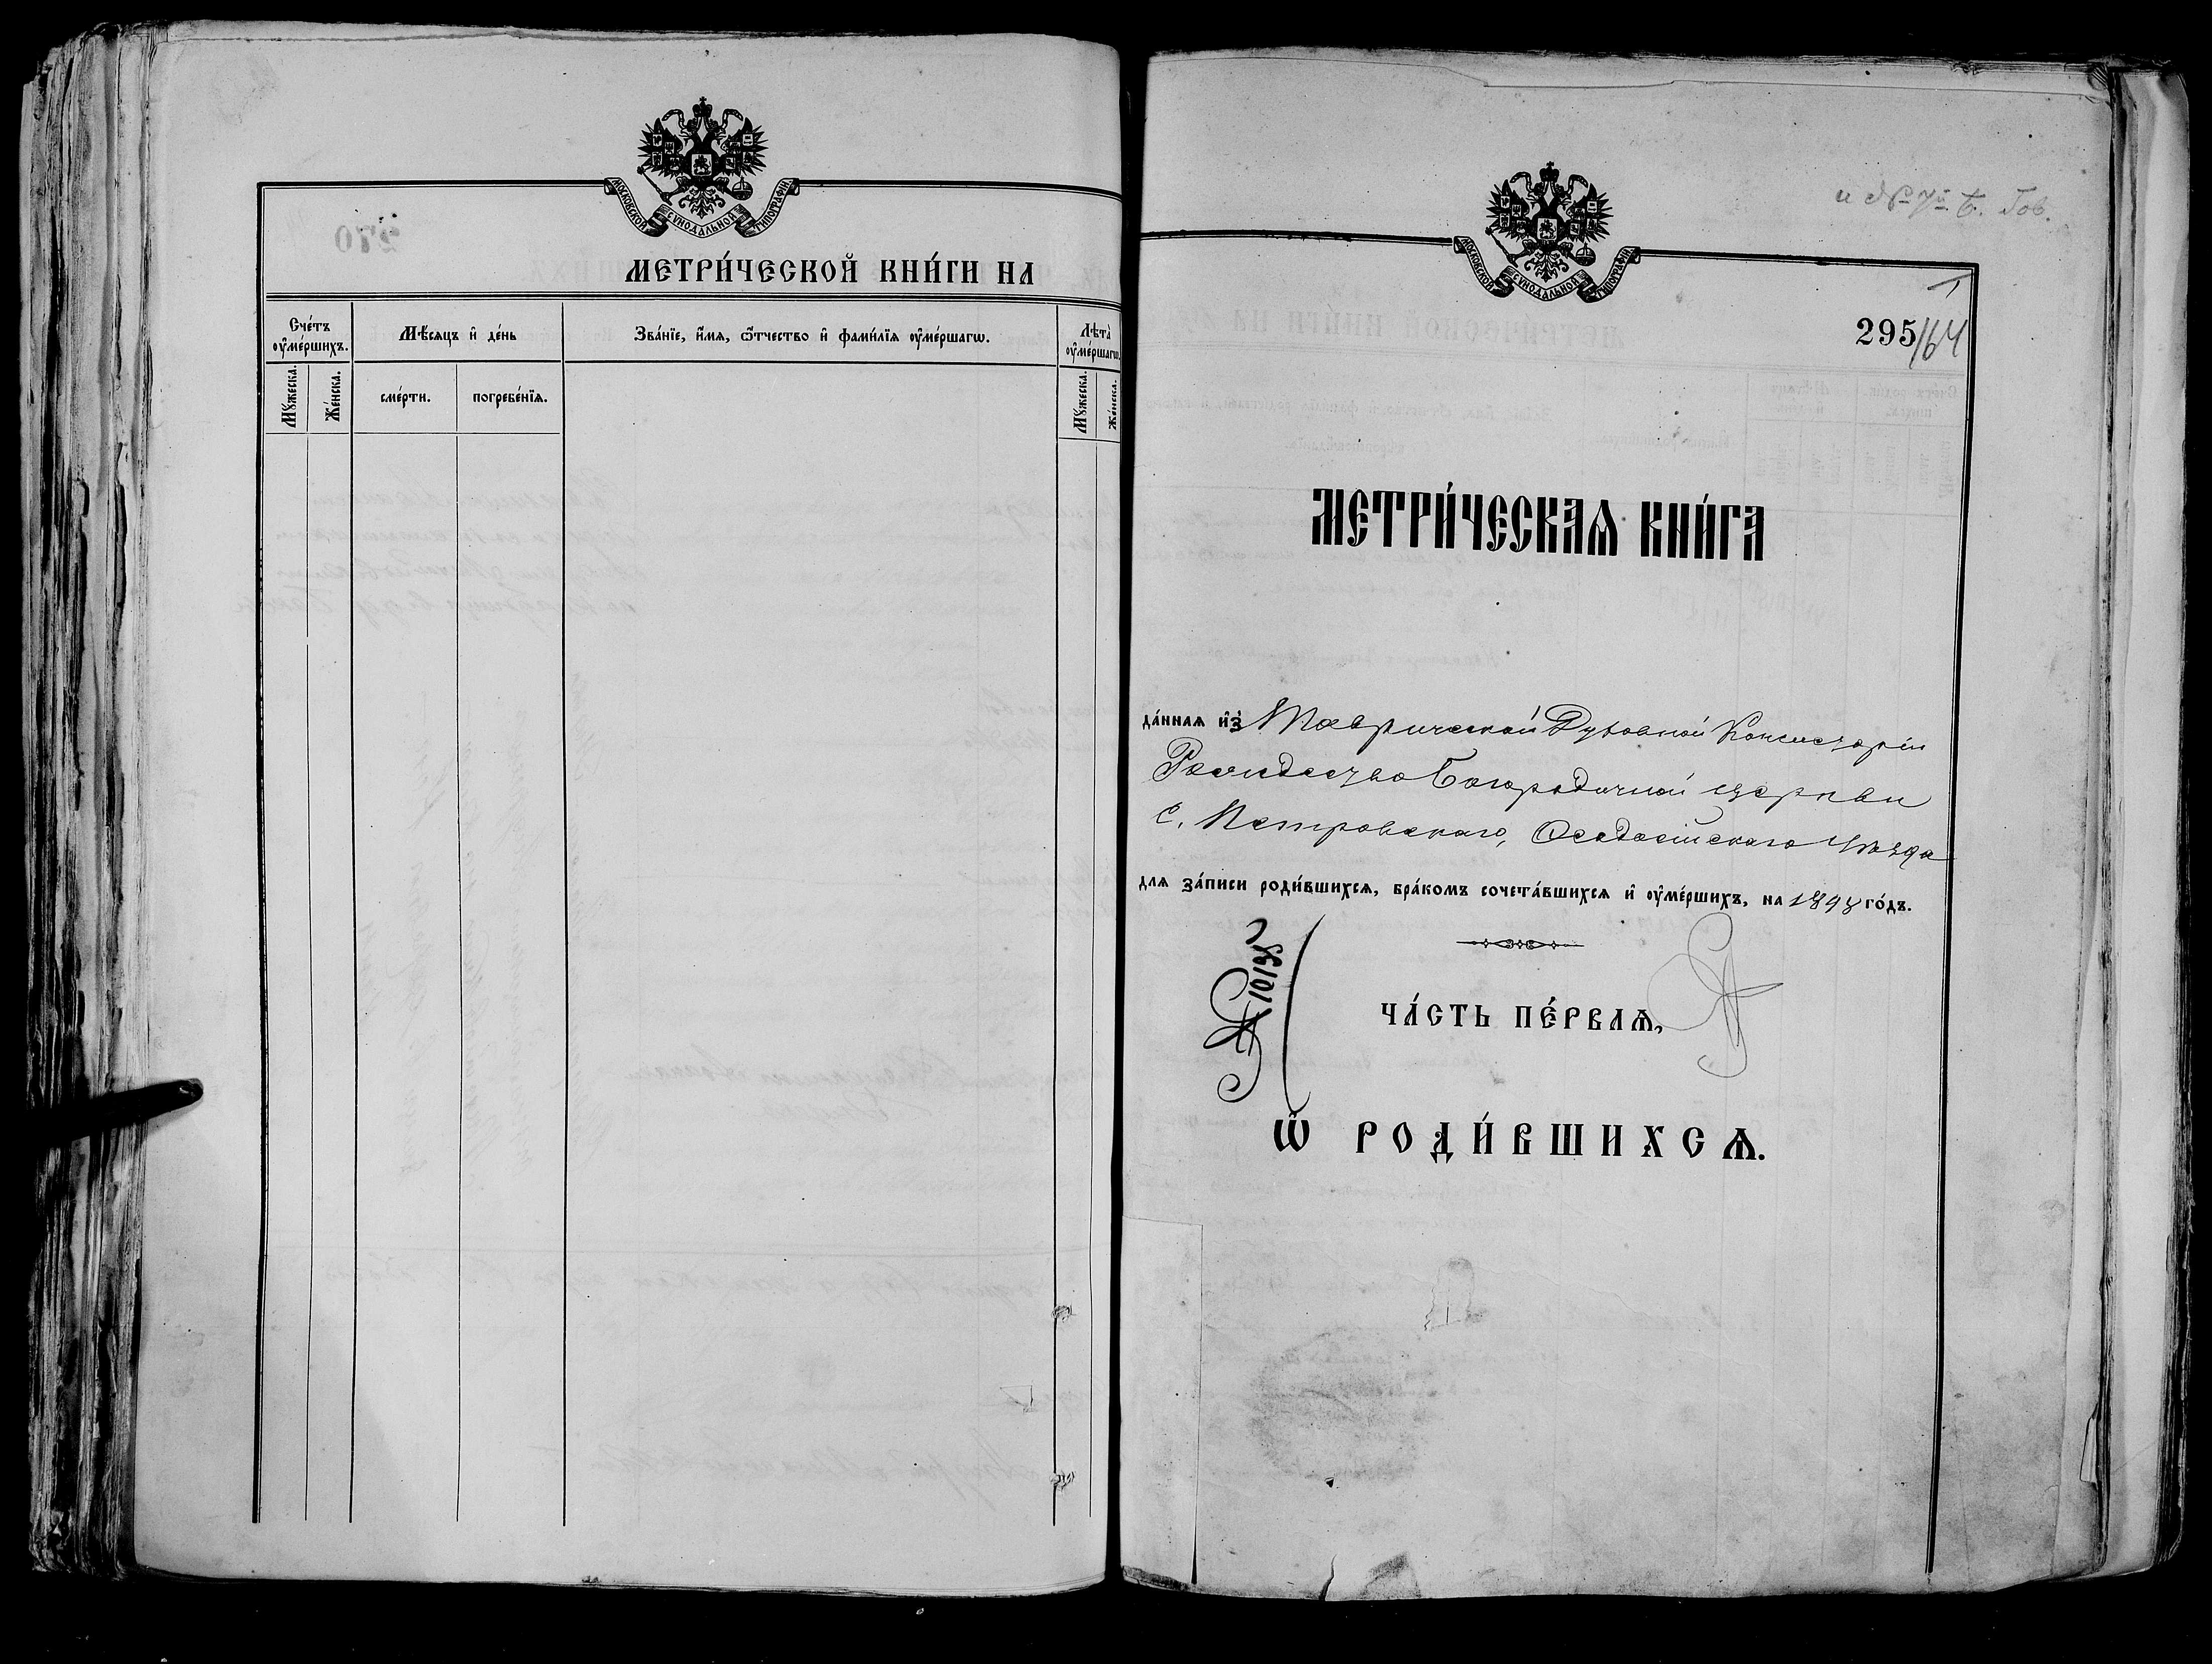 МОСКОВСКОЙ СѴНОДАЛЬНОЙ ТИПОГРАФІИ.
270
МЕТРИ́ЧЕСКОЙ КНИ́ГИ НА
Сче́тъ ᲂу҆ме́ршихъ.
Мѣ́сяцъ и҆ де́нь
Зва́нїе, и҆́мѧ, ѻ҆́тчество и҆ фами́лїѧ ᲂу҆ме́ршагѡ.
Лѣта̀ ᲂу҆ме́ршагѡ
Мꙋ́жеска.
Же́нска.
сме́рти.
погребе́нїѧ.
Мꙋ́жеска.
Же́нска.
МОСКОВСКОЙ СѴНОДАЛЬНОЙ ТИПОГРАФІИ.
295/164
МЕТРИ́ЧЕСКАѦ КНИ́ГА
да́ннаѧ и҆з̾ Таврической Духовной Консисторіи
Рождество Богородичной церкви
с. Петровскаго, Ѳеодосійскаго уѣзда
длѧ за́писи роди́вшихсѧ, бра́комъ сочета́вшихсѧ и҆ ᲂу҆ме́ршихъ, на 1898 го́дъ.
№ 10135
ЧА́СТЬ ПЕ́РВАѦ,
Ѡ҆ РОДИ́ВШИХСѦ.